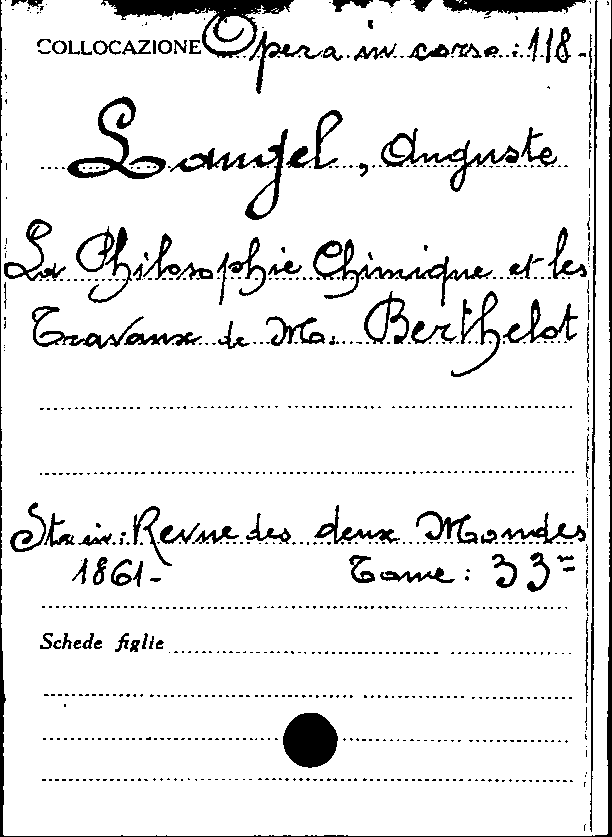 COLLOCAZIONE Opera in corso: 118-
Laugel, Auguste
La Philosophie Chimique et les
Travaux de M. Berthelot
Sta in: Revue des deux Mondes
1861- Tome: 33=
Schede figlie